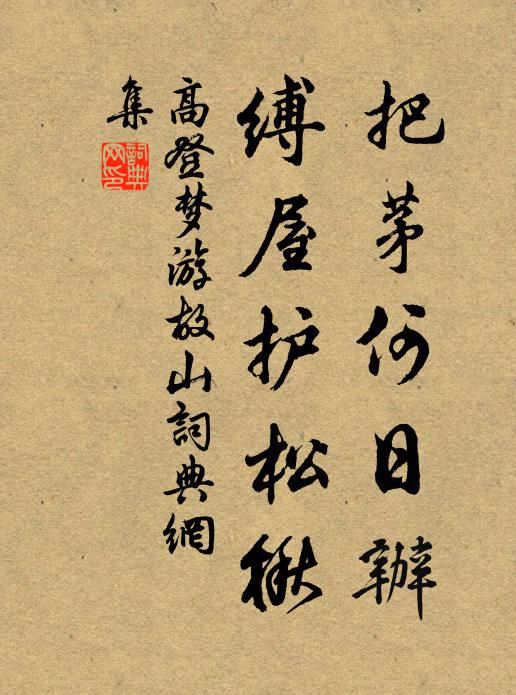 把茅何日辦
缚屋护松楸
高登梦游故山詞典網
集
詞典网印